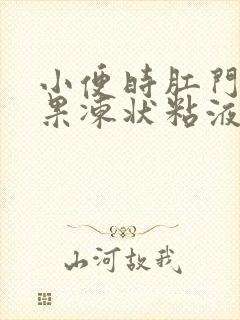 小便时肛門
果凍状粘液
山河故我